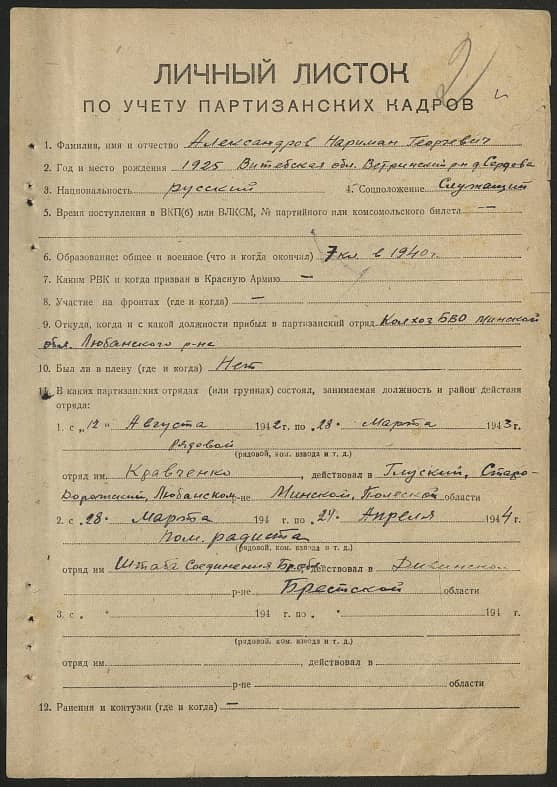 2
ЛИЧНЫЙ ЛИСТОК
ПО УЧЕТУ ПАРТИЗАНСКИХ КАДРОВ
1. Фамилия, имя и отчество Александров Нариман Георгиевич
2. Год и место рождения 1925 Витебская обл. Ветринский р-н д.
3. Национальность русский 4. Соцположение Служащий
5. Время поступления в ВКП(б) или ВЛКСМ, № партийного или комсомольского билета —
6. Образование: общее и военное (что и когда окончил) 7 кл. в 1940 г.
7. Каким РВК и когда призван в Красную Армию —
8. Участие на фронтах (где и когда) —
9. Откуда, когда и с какой должности прибыл в партизанский отряд Колхоз БВО Минской
обл. Любанского р-на
10. Был ли в плену (где и когда) Нет
11. В каких партизанских отрядах (или группах) состоял, занимаемая должность и район действия
отряда:
1. с „12" Августа 1942 г. по „28" Марта 1943 г.
Рядовой
(рядовой, ком. взвода и т. д.)
отряд им Кравченко, действовал в Глуский, Старо-
Дорожский, Любанском р-не Минской, Полеской области
2. с „28" Марта 194 г. по „24" Апреля 1944 г.
Пом. радиста
(рядовой, ком. взвода и т. д.)
отряд им Штаба Соединения действовал в
р-не Брестской области
3. с „ " 194 г. по „ " 194 г.
(рядовой, ком. взвода и т. д.)
отряд им , действовал в
р-не области
12. Ранения и контузии (где и когда) —